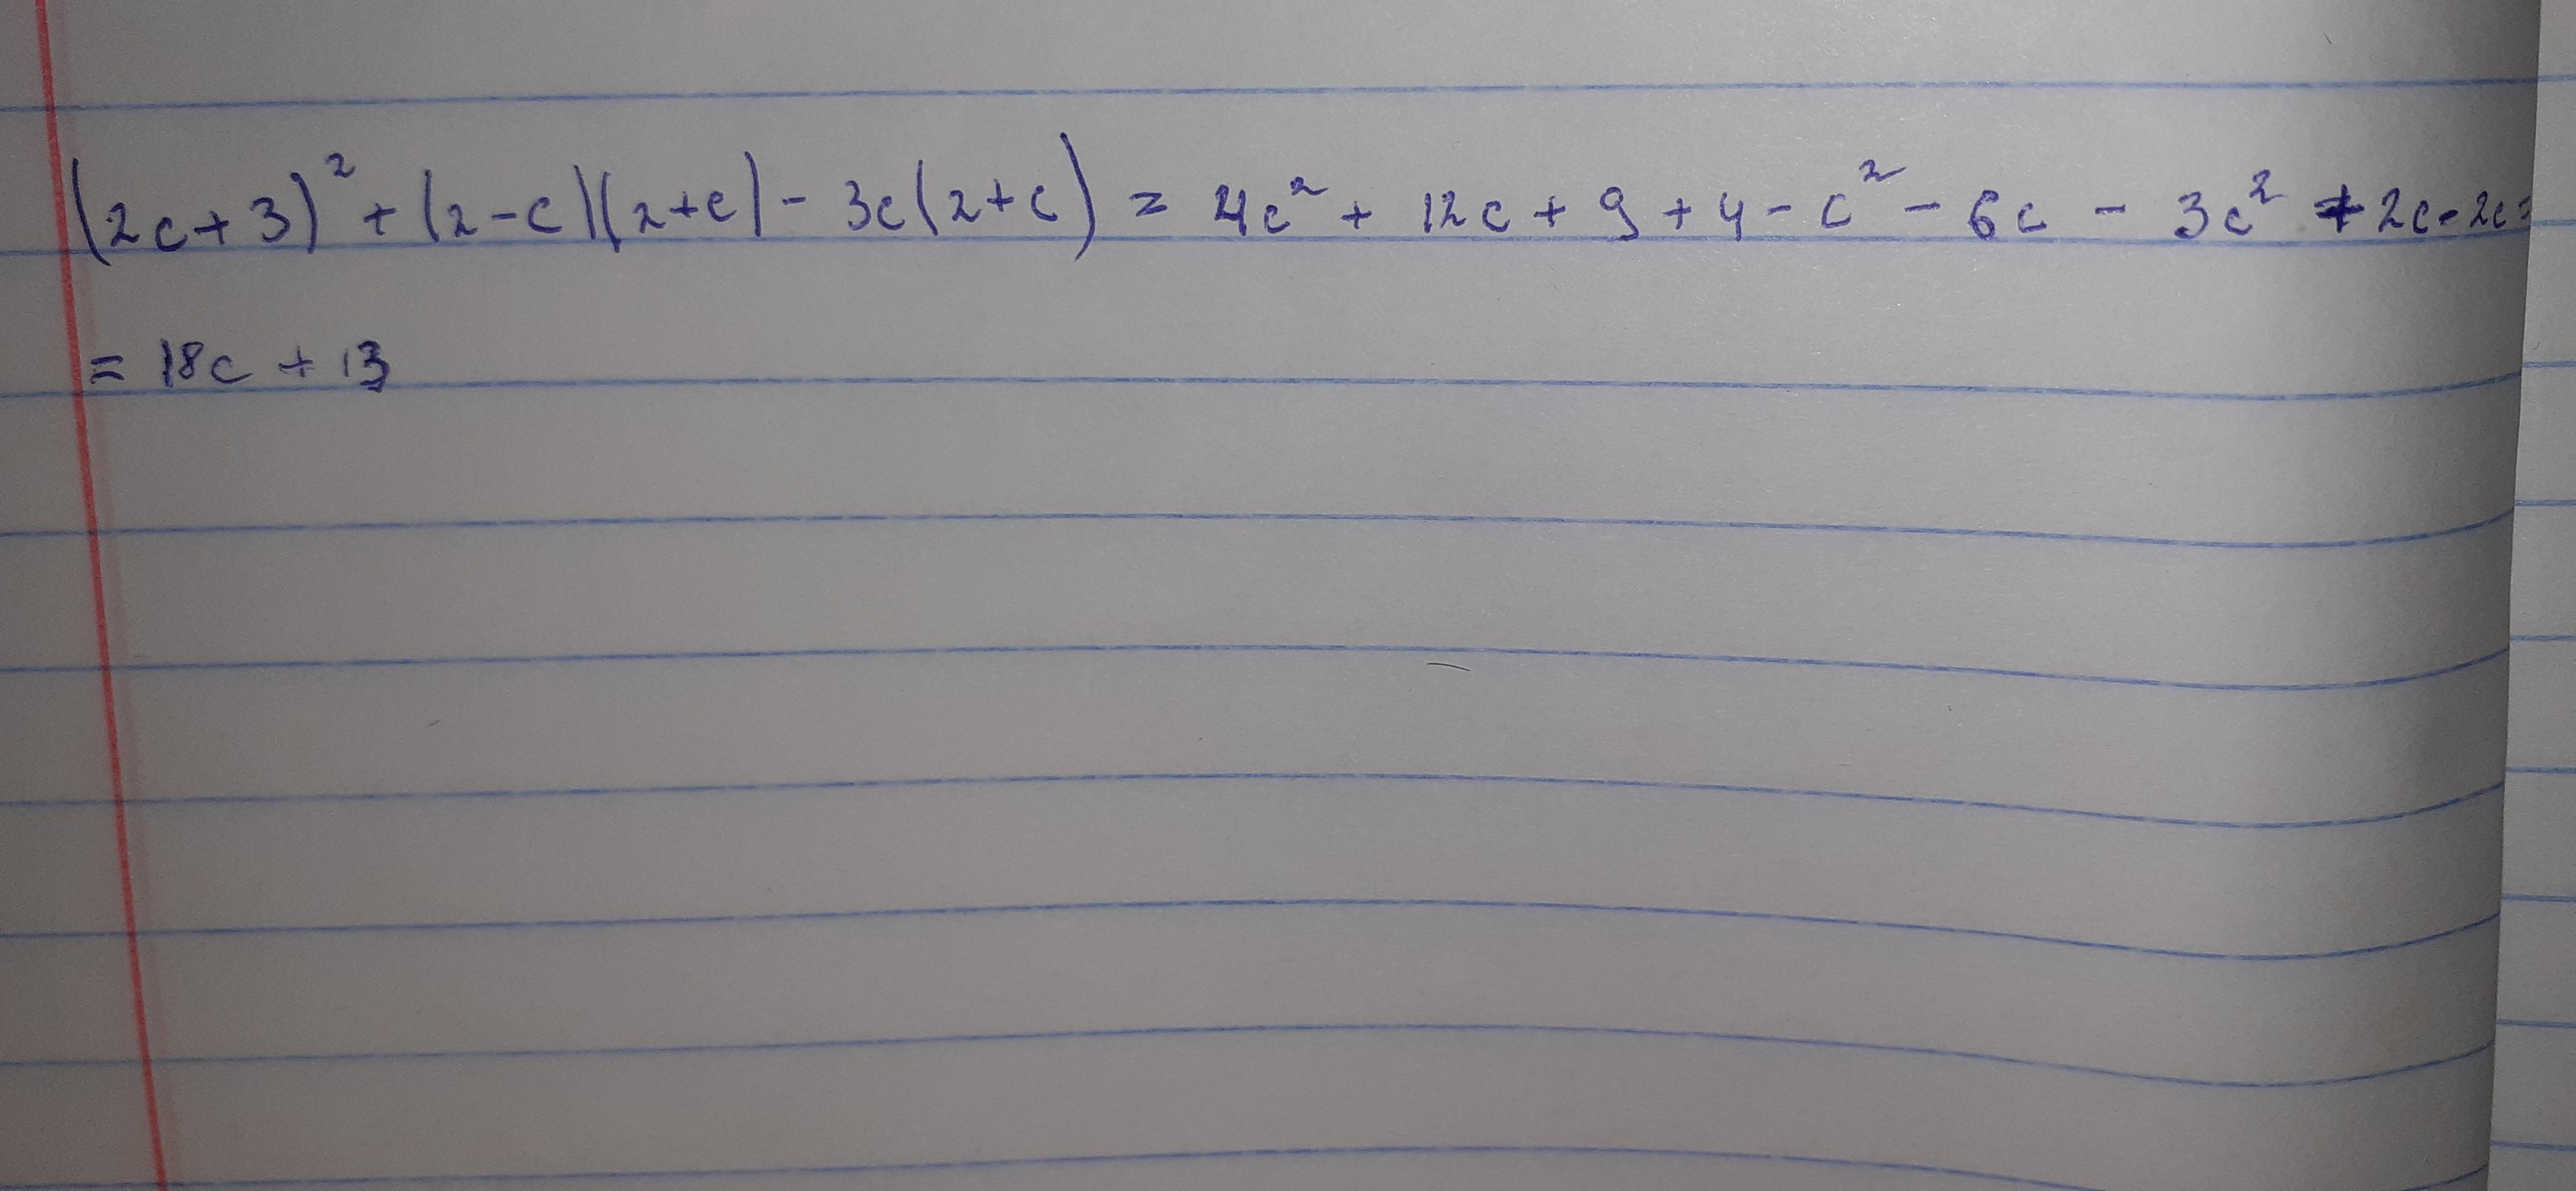 (2c+3)² + (2-c)(2+c) - 3c(2+c) = 4c² + 12c + 9 + 4 - c² - 6c - 3c² + 2c - 2c =
= 18c + 13